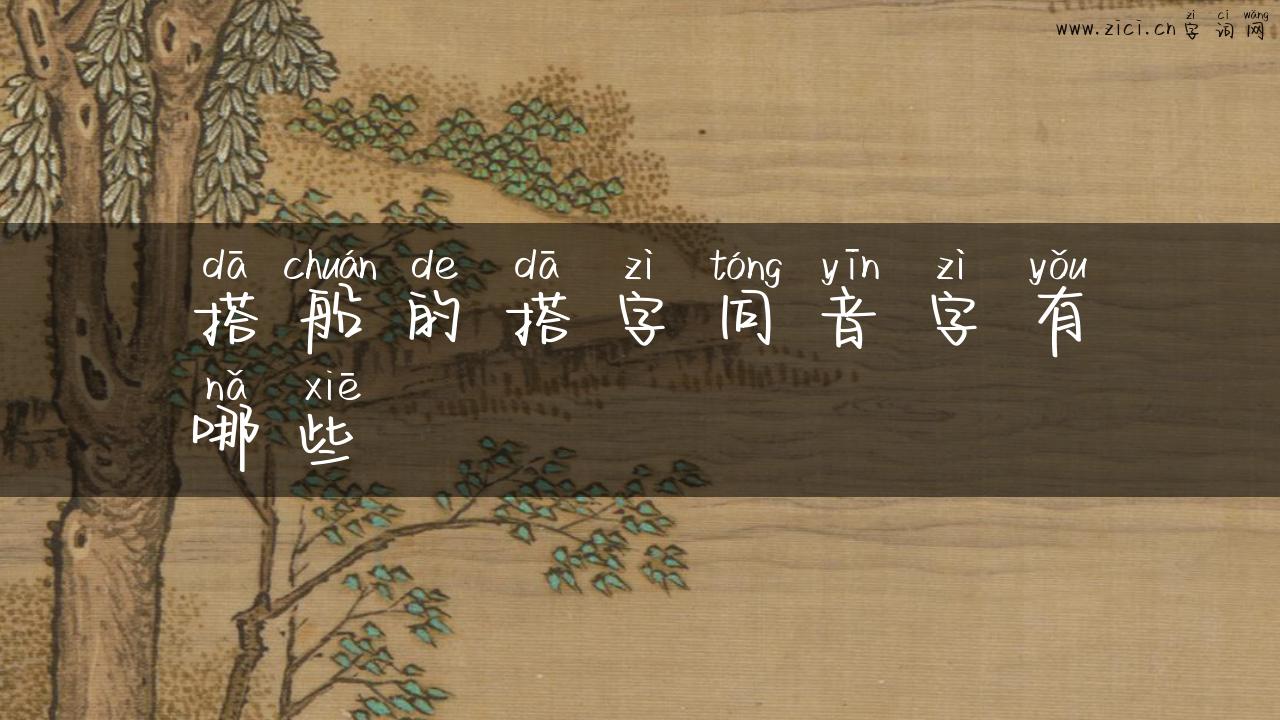 zì cí wǎng
www.zici.cn 字词网
dā chuán de dā zì tóng yīn zì yǒu
搭船的搭字同音字有
nǎ xiē
哪些